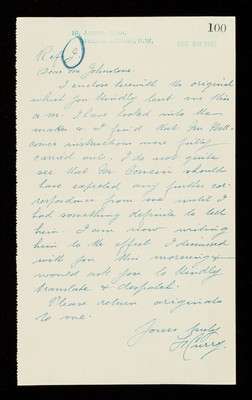 100
10,
N.W.
Ref J
Dear Mr. Johnstone.
I enclose herewith the original
which you kindly lent me this
a.m. I have looked into the
matter & I find that Mr Well-
come's instructions were fully
carried out. I do not quite
see that Mr should
have expected any further cor-
respondence from me until I
had something definite to tell
him. I am now writing
him to the effect I discussed
with you this morning &
would ask you to kindly
translate & despatch.
Please return originals
to me.
Yours truly
Curry.